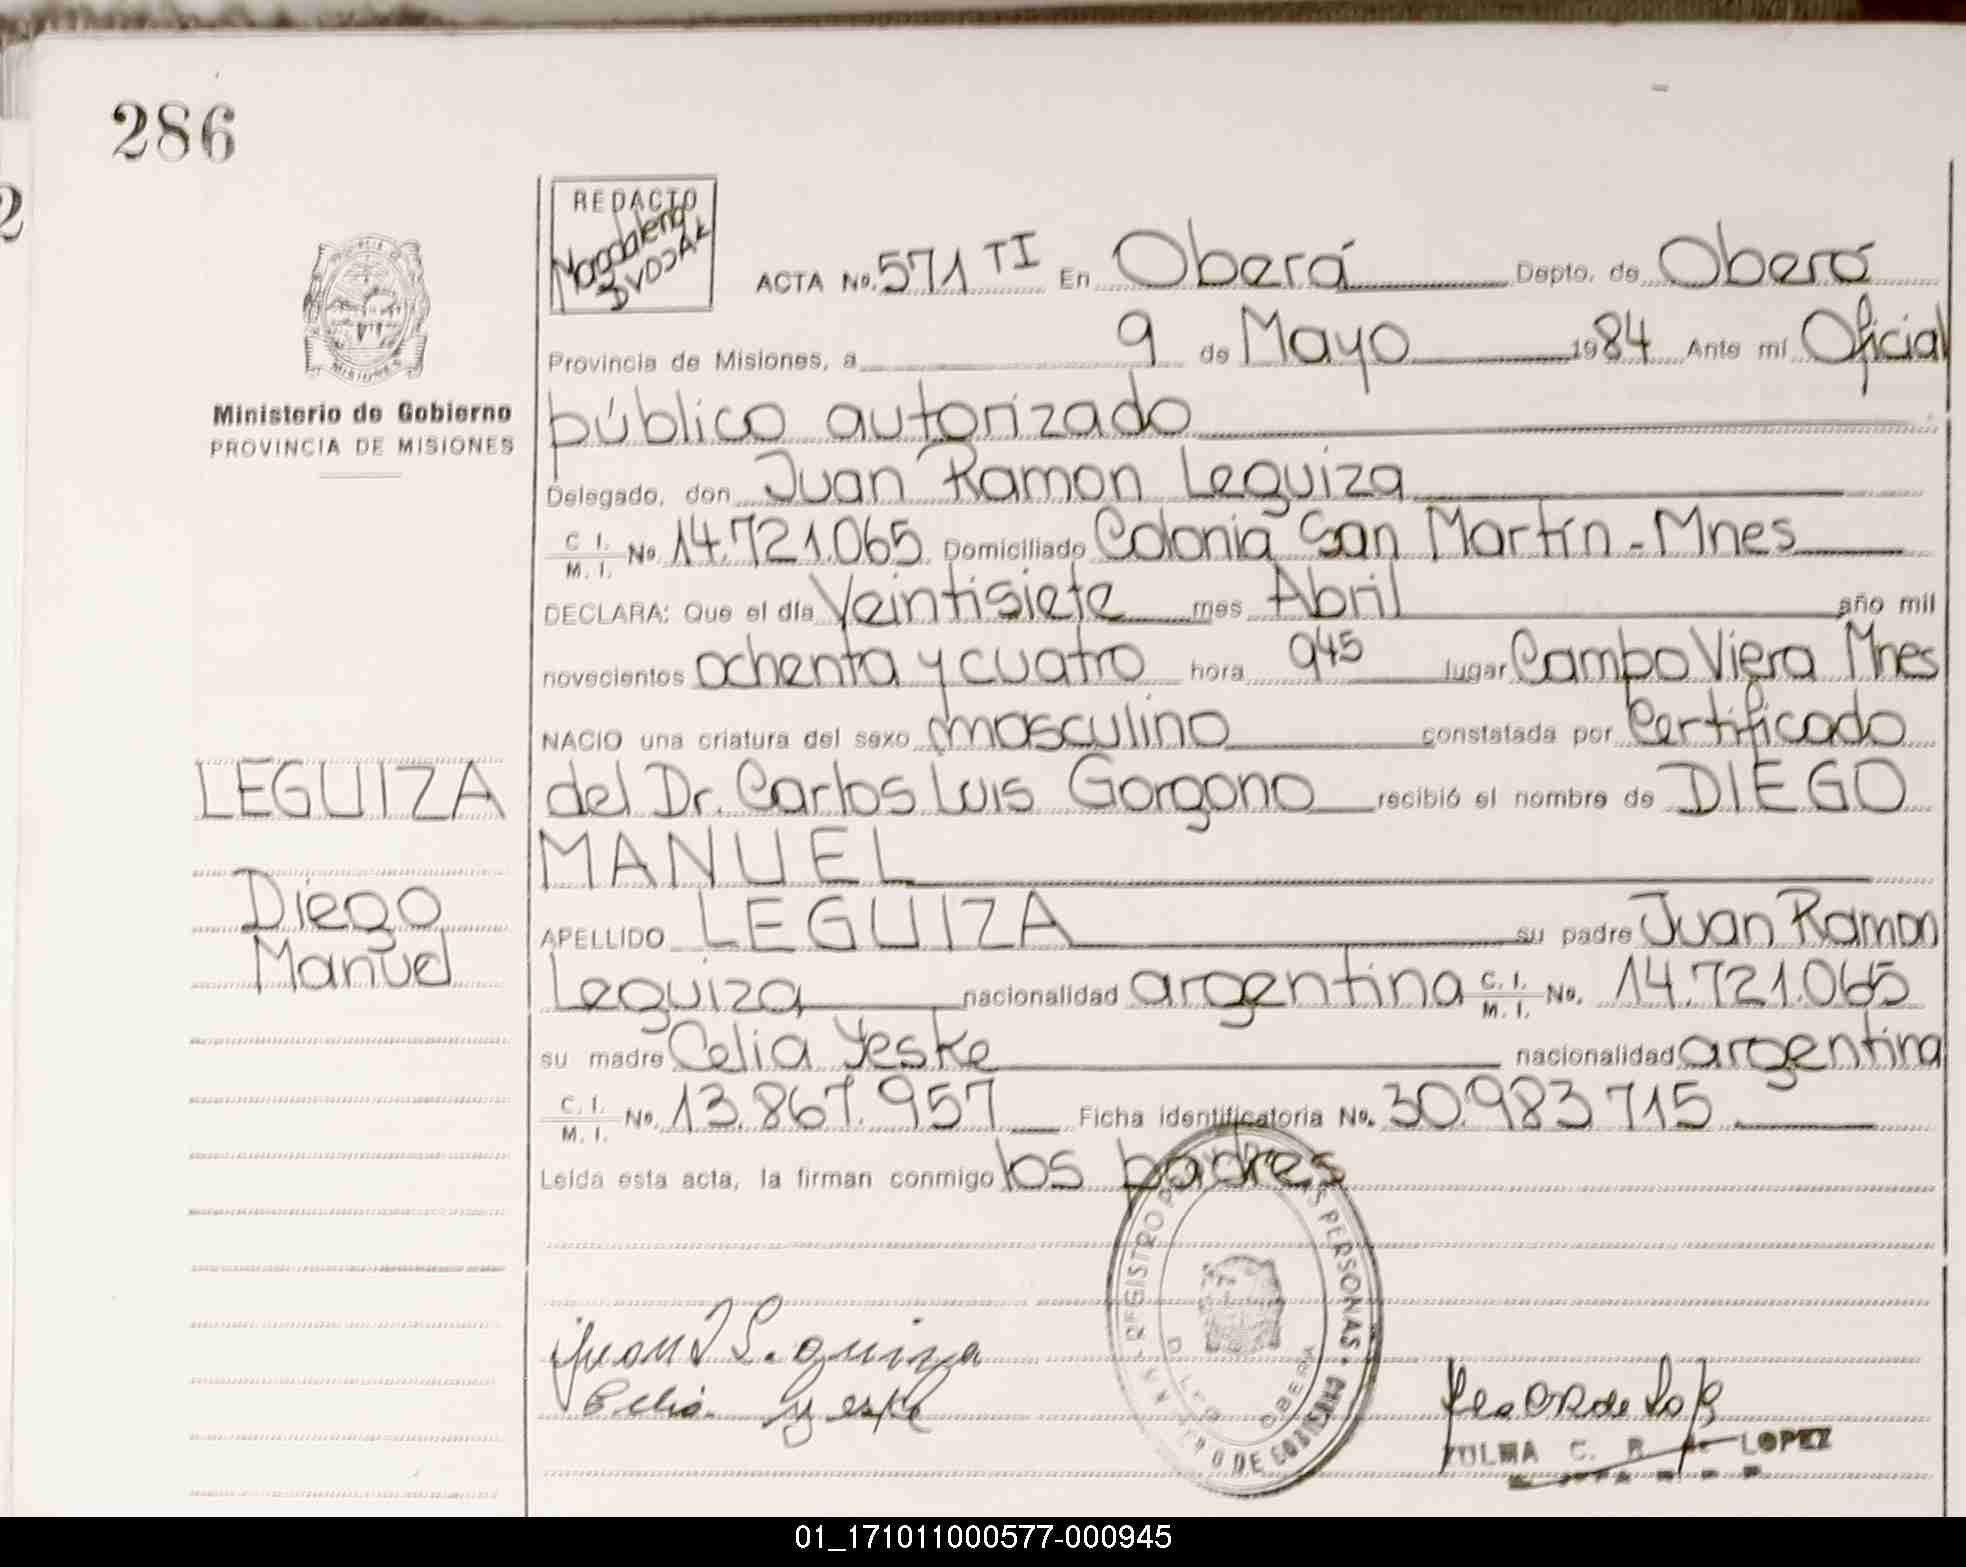 286
2
REDACTO
Magdalena
DVOJAK
ACTA No. 571 TI En Oberá Depto. de Oberá
Provincia de Misiones, a 9 de Mayo 1984 Ante mí Oficial
Ministerio de Gobierno
PROVINCIA DE MISIONES
público autorizado
Delegado, don Juan Ramon Leguiza
C I. M. I. No. 14.721.065 Domiciliado Colonia San Martín - Mnes
DECLARA: Que el día Veintisiete mes Abril año mil
novecientos ochenta y cuatro hora 945 lugar Campo Viera Mnes
NACIO una criatura del sexo masculino constatada por Certificado
LEGUIZA
del Dr. Carlos Luis Gorgono recibió el nombre de DIEGO
MANUEL
Diego
Manuel
APELLIDO LEGUIZA su padre Juan Ramon
Leguiza nacionalidad argentina C. I. M. I. No. 14.721.065
su madre Celia Yeske nacionalidad argentina
C. I. M. I. No. 13.867.957 Ficha identificatoria No. 30.983.715
Leída esta acta, la firman conmigo los padres
REGISTRO PERSONAS
OBERA
DE GOBIERNO
Celia Yeske
ZULMA C. R. de LOPEZ
MISIONES
01_171011000577-000945